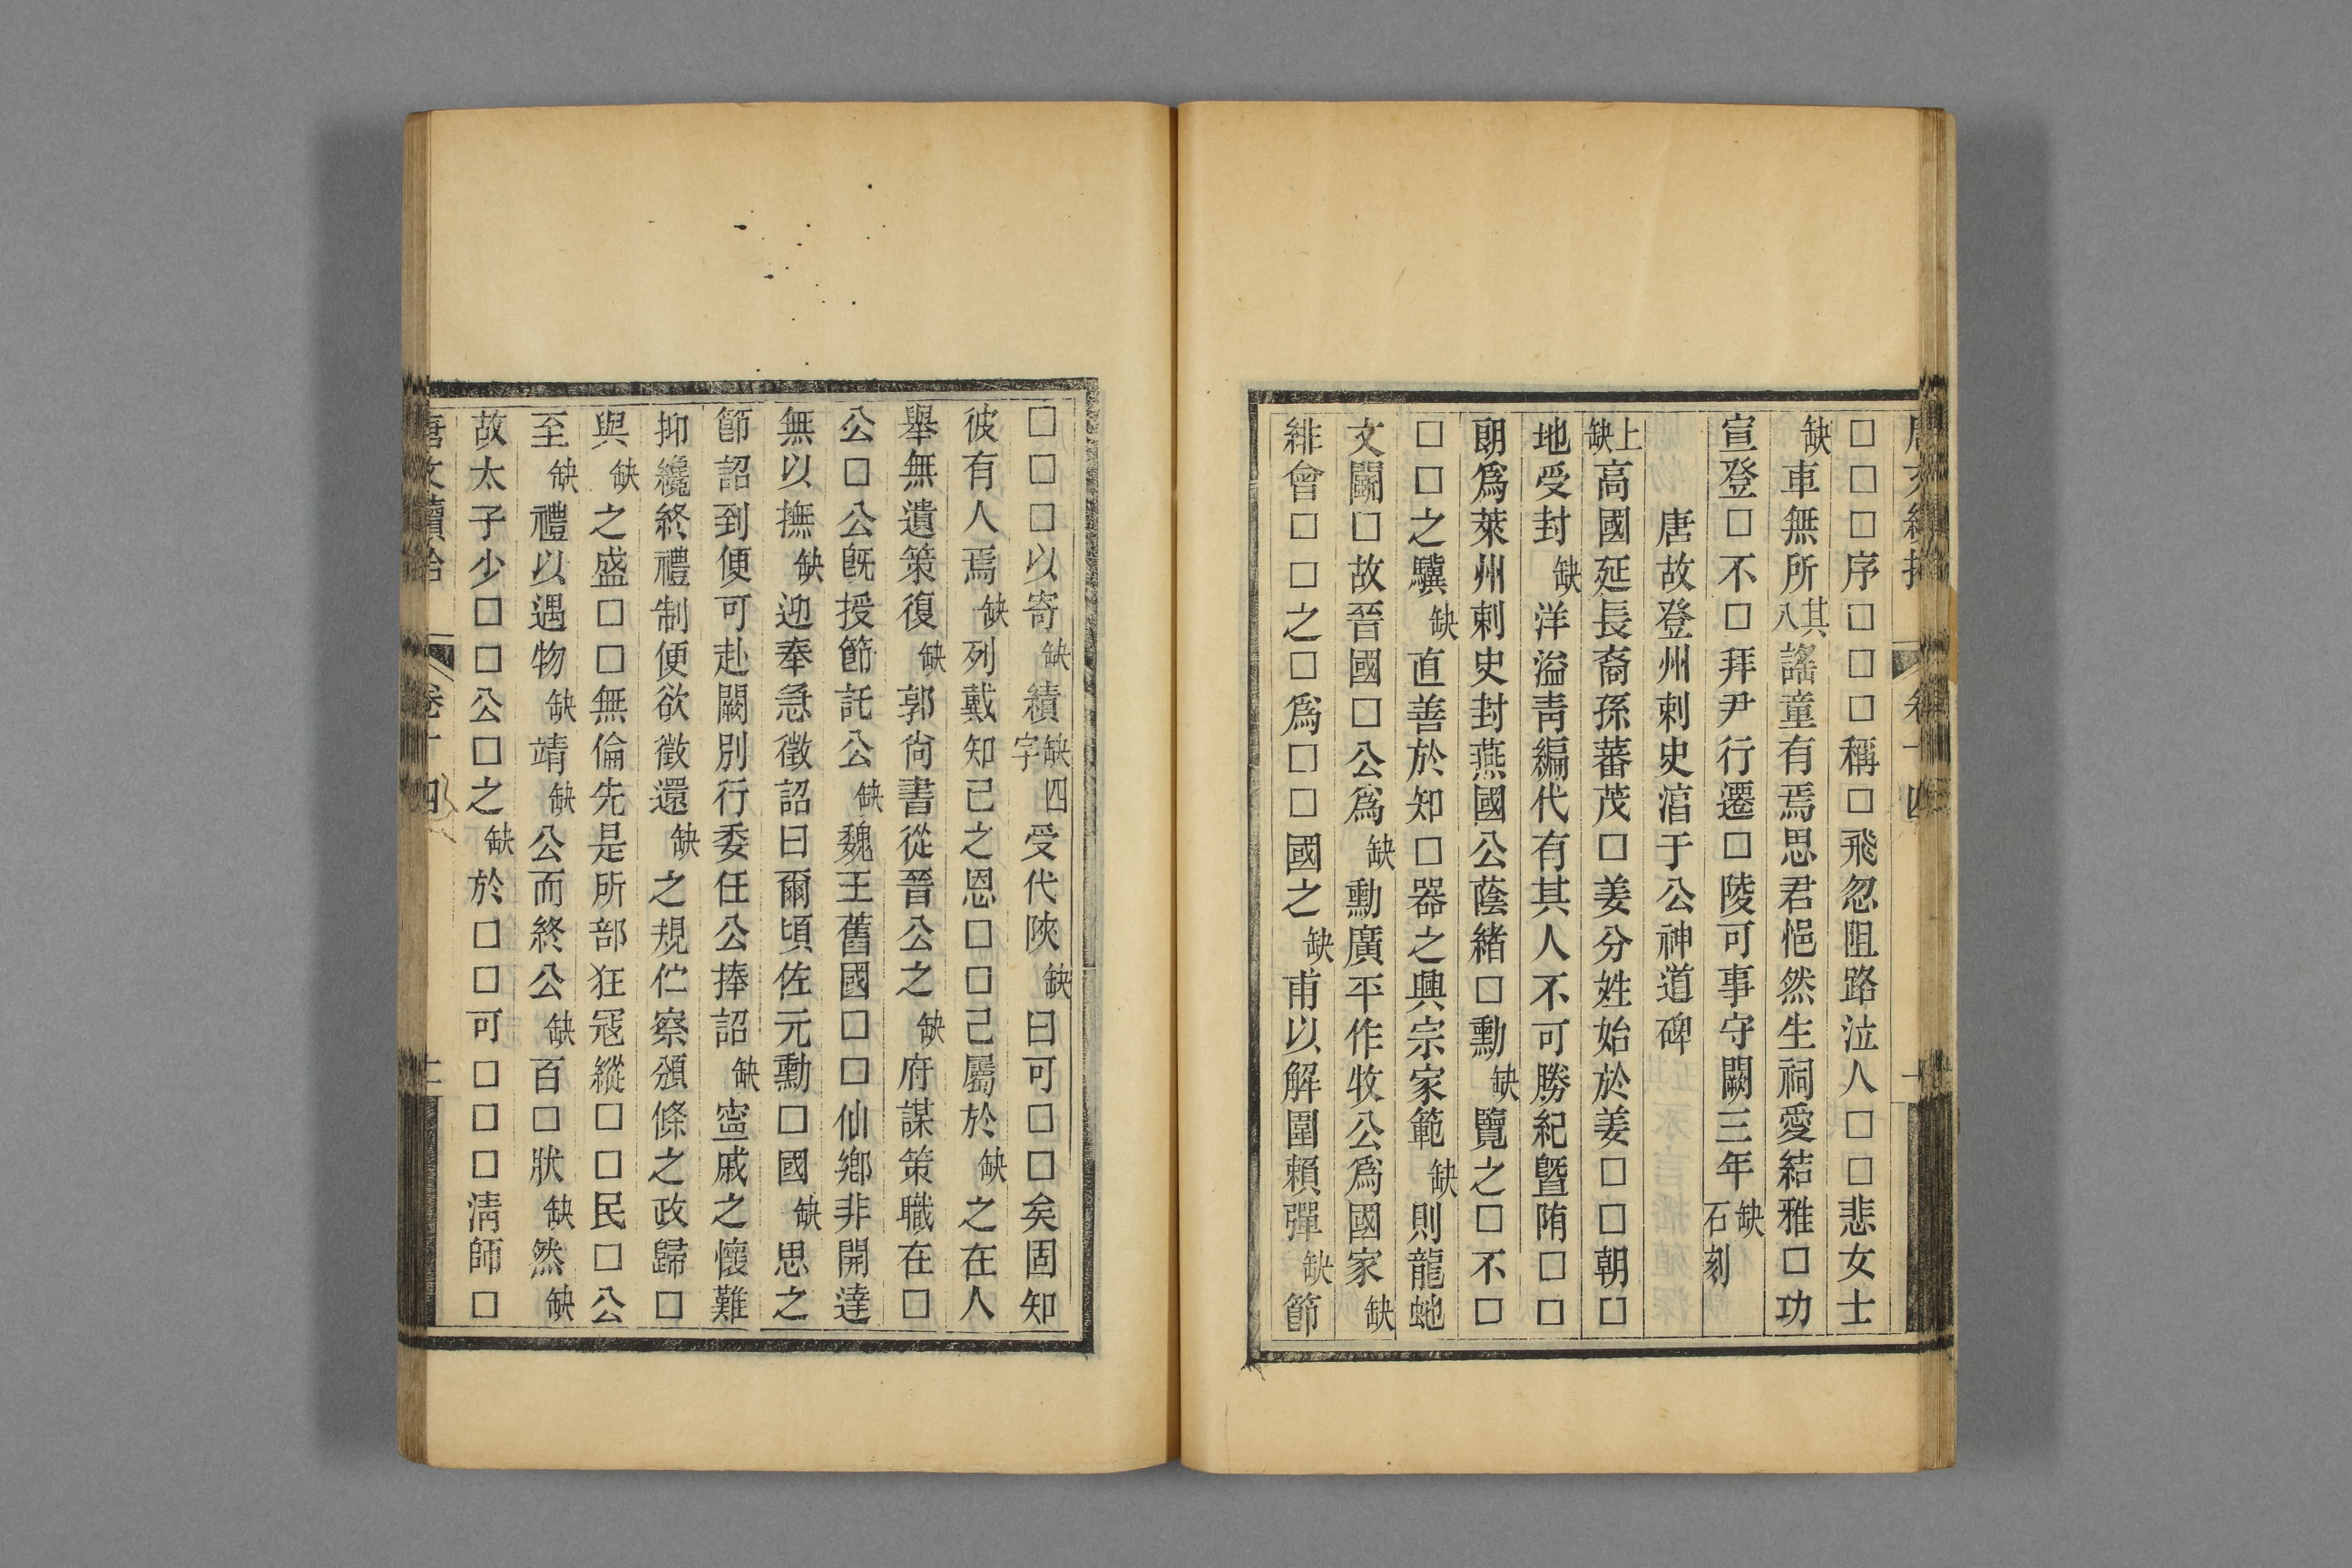 □□□序□□□稱□飛忽阻路泣人□□悲女士
缺車無所其八謠童有焉思君悒然生祠愛結雅□功
宣登□不□拜尹行遷□陵可事守闕三年缺石刻
唐故登州刺史淳于公神道碑
上缺高國延長裔孫蕃茂□姜分姓始於姜□□朝□
地受封缺洋溢靑編代有其人不可勝紀曁隋□□
朗爲萊州刺史封燕國公蔭緒□勳缺覽之□不□
□□之驥缺直善於知□器之興宗家範缺則龍虵
文關□故晉國□公爲缺勳廣平作牧公爲國家缺
緋會□□之□爲□□國之缺甫以解圍賴彈缺節
□□□以寄缺績缺四字受代陝缺曰可□□矣固知
彼有人焉缺列戴知己之恩□□己屬於缺之在人
舉無遺策復缺郭尙書從晉公之缺府謀策職在□
公□公旣授節託公缺魏王舊國□□仙鄉非開達
無以撫缺迎奉急徵詔曰爾頃佐元勳□國缺思之
節詔到便可赴闕別行委任公捧詔缺寍戚之懷難
抑纔終禮制便欲徵還缺之規伫察頒條之政歸□
與缺之盛□□無倫先是所部狂冦縱□□民□公
至缺禮以遇物缺靖缺公而終公缺百□狀缺然缺
故太子少□□公□之缺於□□可□□□淸師□
唐文續拾 卷十四 二